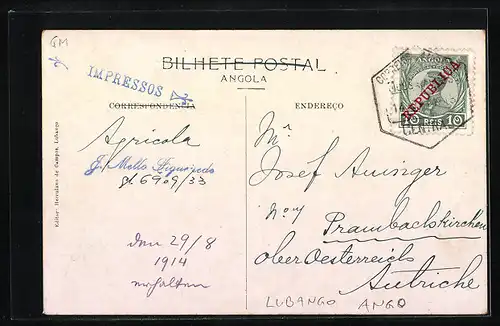 GM
BILHETE POSTAL
ANGOLA
IMPRESSOS
CORRESPONDENCIA
ENDEREÇO
ANGOLA
REPUBLICA
10 REIS 10
CENTRAL
Agricola
J. Mello Figueiredo
gl. 6909/33
den 29/8
1914
erhalten
Editor: Herculano de Campos, Lubango
Mr.
Josef Auinger
No 4
Prambachkirchen
oberOesterreich
Autriche
LUBANGO ANGO